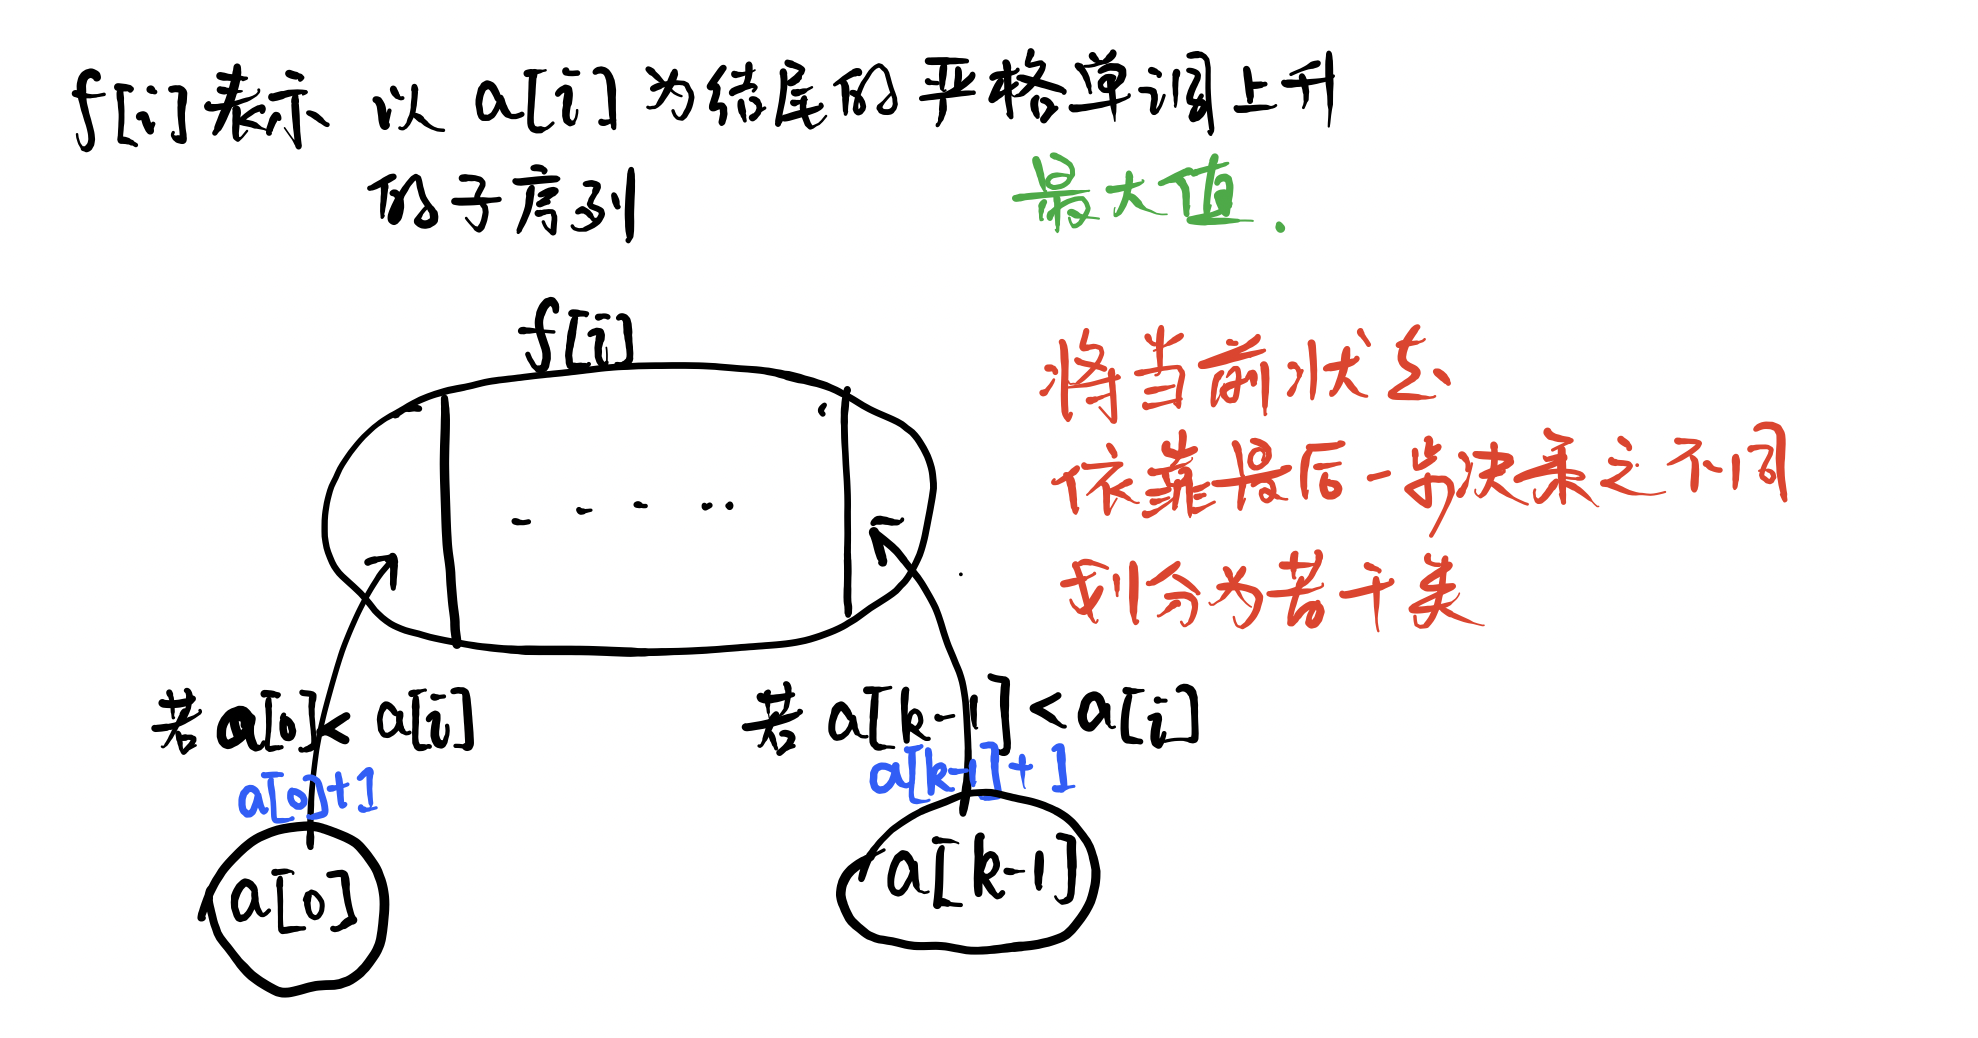 f[i]表示 以 a[i]为结尾的严格单调上升
的子序列 最大值.
f[i]
将当前状态
依靠最后一步决策之不同
划分为若干类
若a[0]< a[i]
若 a[k-1]<a[i]
a[0]+1
a[k-1]+1
a[0]
a[k-1]